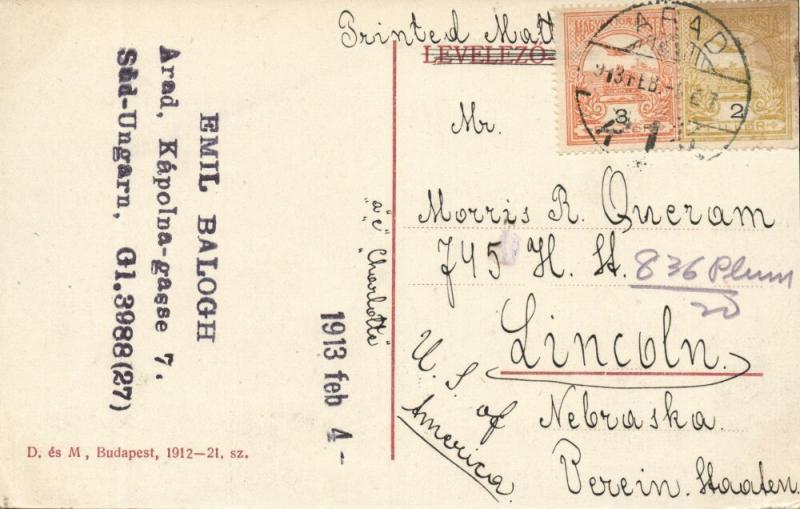 Printed Matt
LEVELEZŐ-
MAGYAR KIR. POSTA
3
2
ARAD
913 FEB.
Mr.
Morris R. Queram
745 H. St.
836 Plum
20
Lincoln.
Nebraska.
U. S. of
America
Verein. Staaten.
EMIL BALOGH
Arad, Kápolna-gasse 7.
Süd-Ungarn, Gl.3988(27)
"a" "e" "Charlotte"
1913 feb 4 -
D. és M, Budapest, 1912—21. sz.